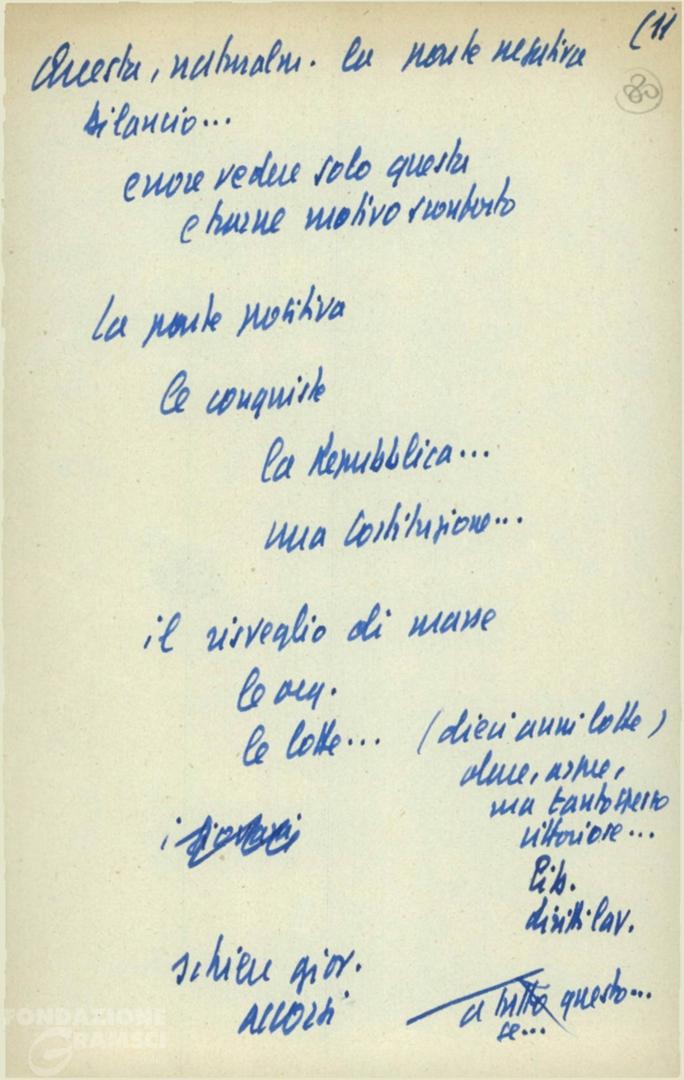 (11
80
Questa, naturalm. la parte negativa
bilancio...
errore vedere solo questa
e trarne motivo sconforto
la parte positiva
le conquiste
la Repubblica...
una Costituzione...
il risveglio di masse
le org.
le lotte... (dieci anni lotte)
dure, aspre,
ma tanto spesso
vittoriose...
Lib.
diritti lav.
i giovani
schiere giov.
accorsi
a tutto questo...
se...
FONDAZIONE
GRAMSCI